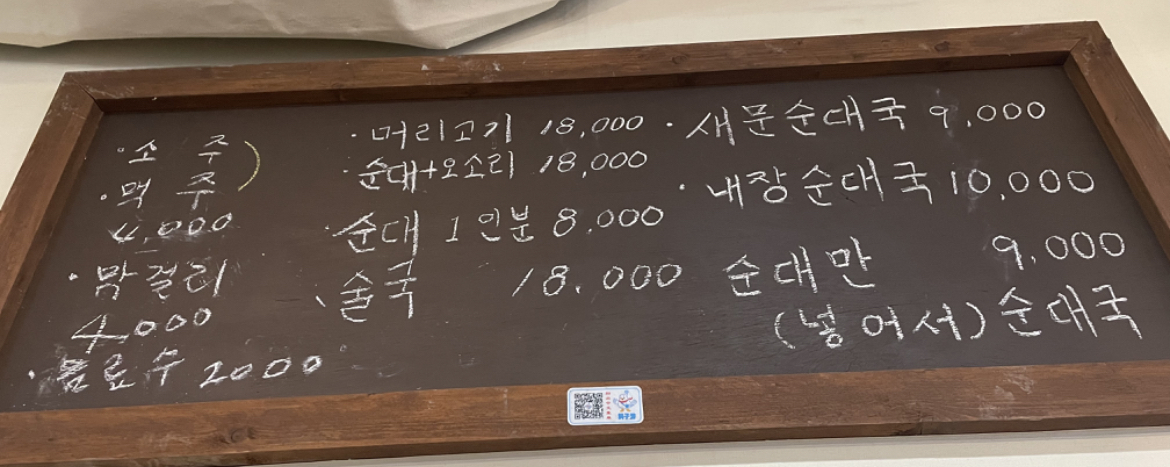 ·소 주
·맥 주
4,000
·막걸리
4000
·음료수 2000
·머리고기 18,000
·순대+오소리 18,000
·순대 1인분 8,000
、술국 18.000
·새문순대국 9,000
·내장순대국 10,000
순대만 9,000
(넣어서) 순대국